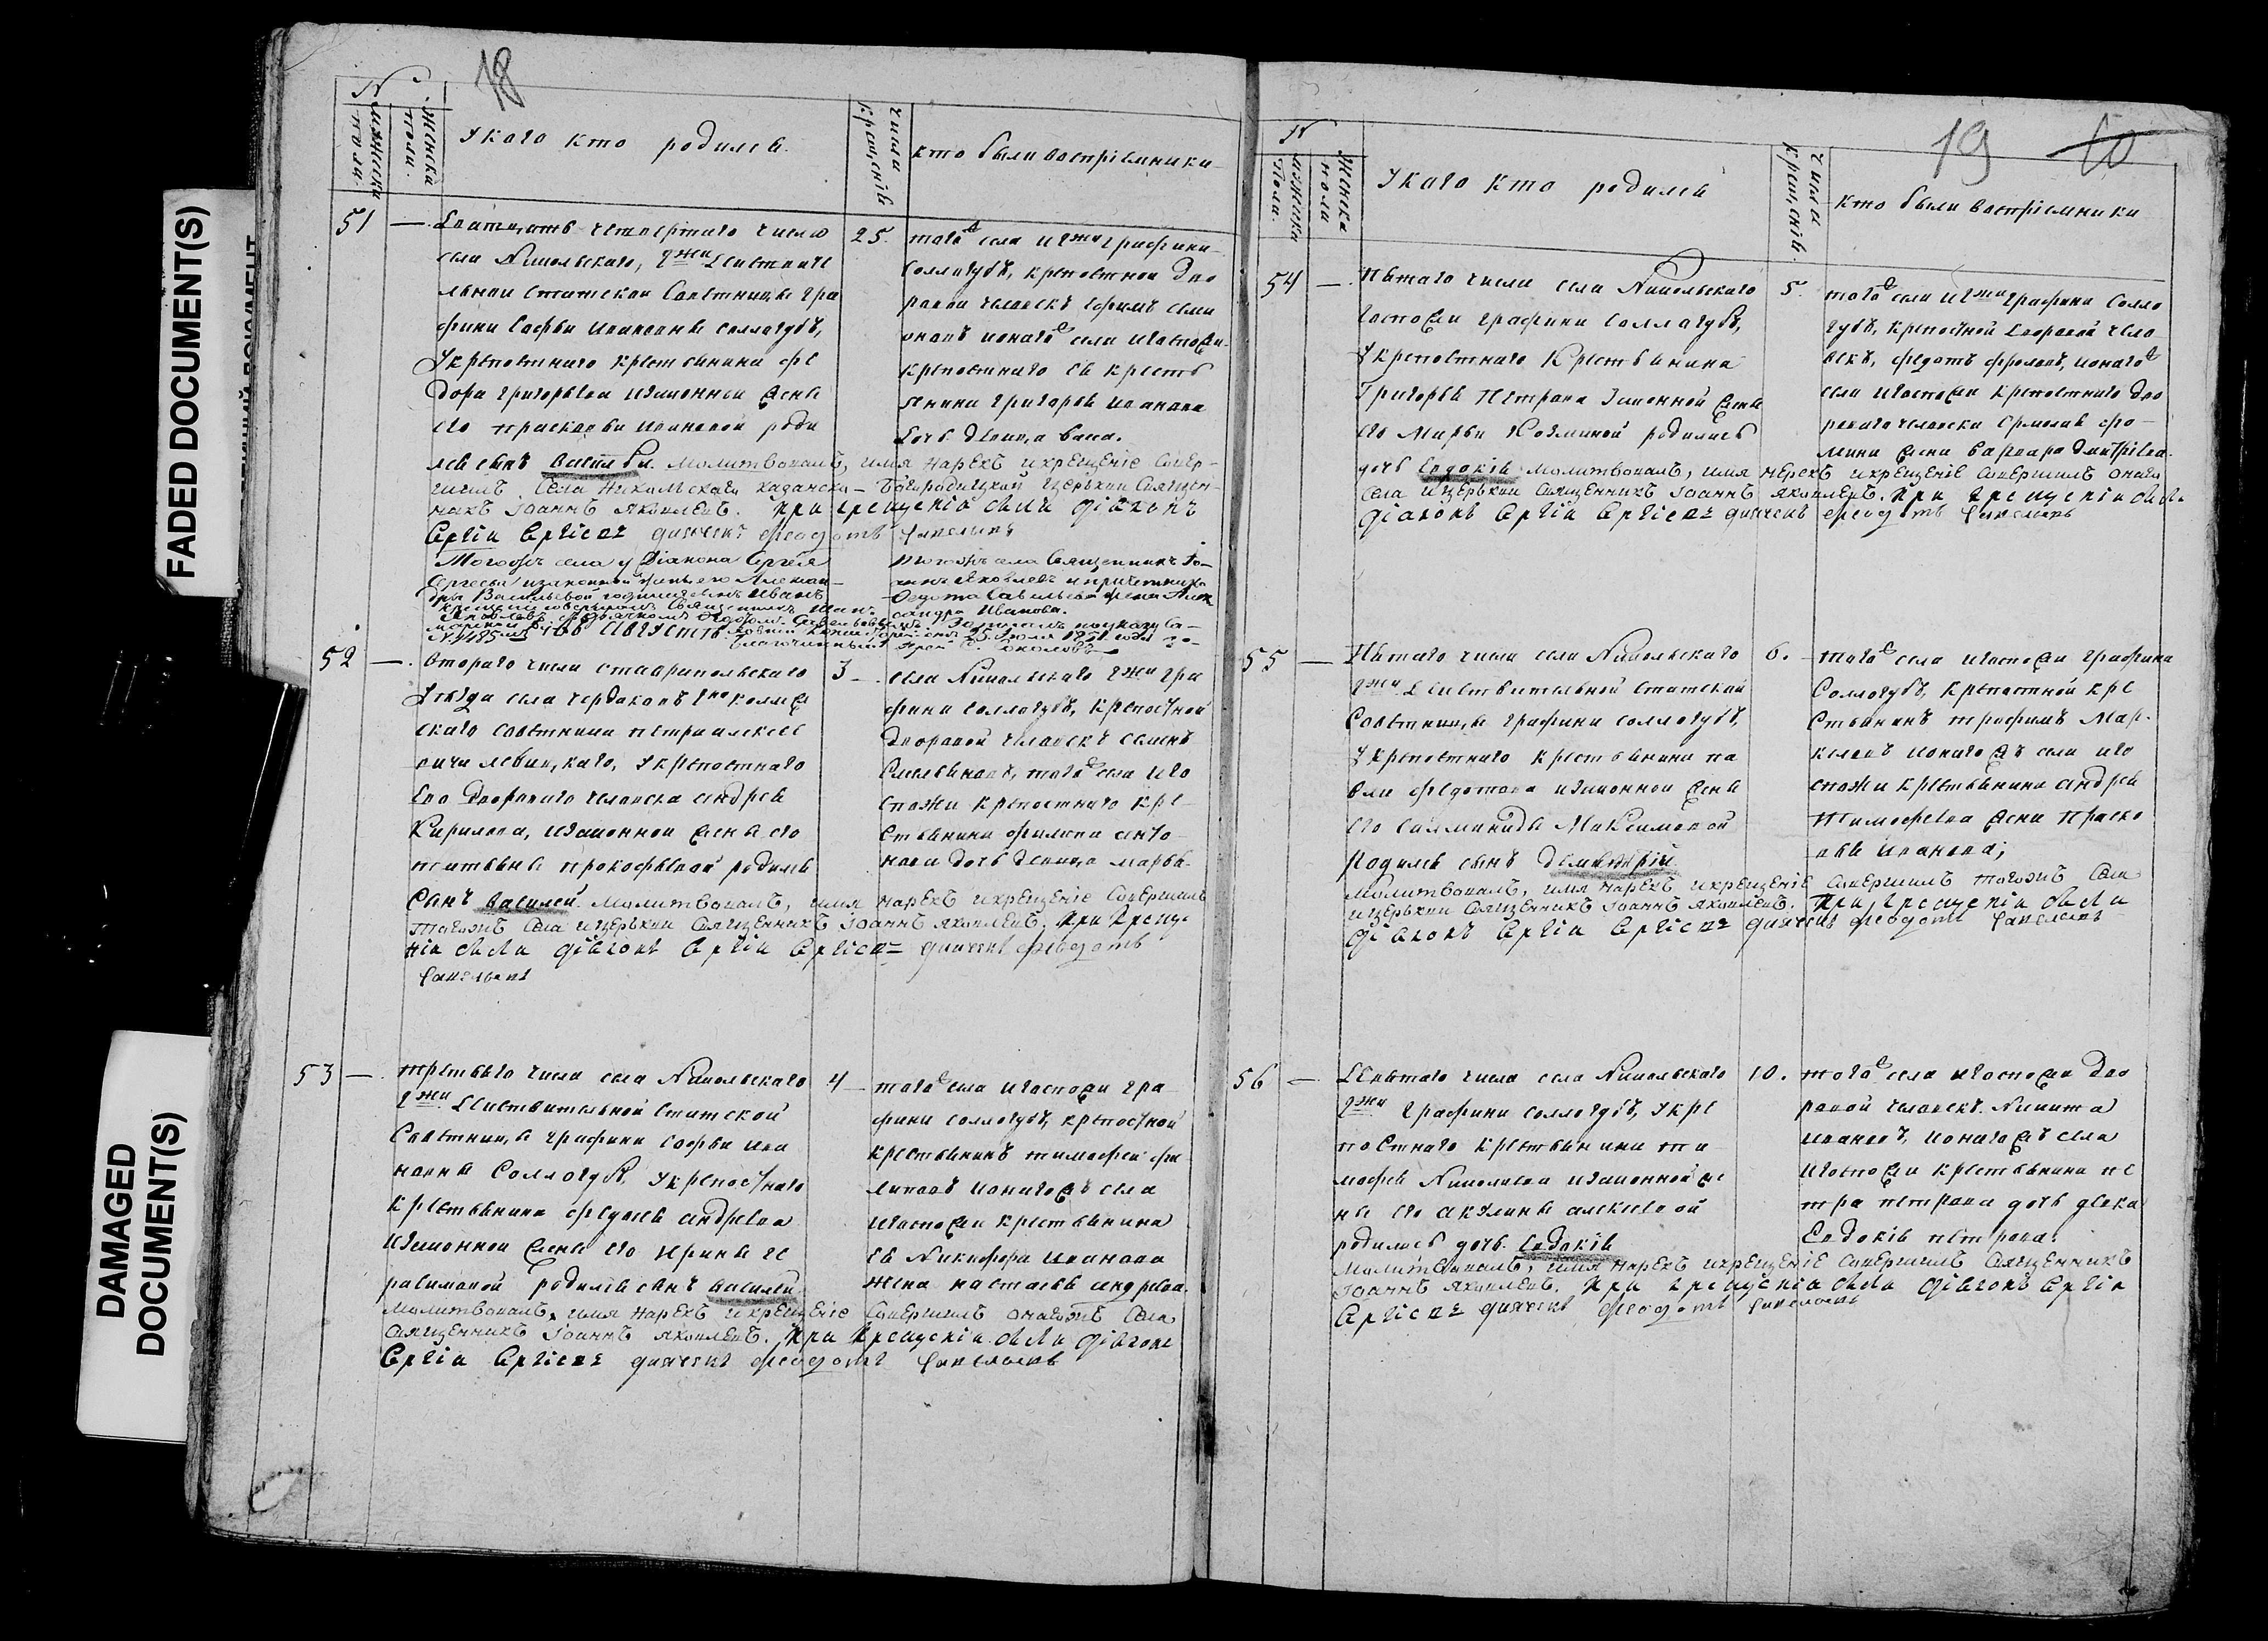 FADED DOCUMENT(S)
DAMAGED
DOCUMENT(S)
18
№
мужеска пола.
женска пола.
У кого кто родился.
числа крещенія
кто были воспріемники
51 — Дватцать четвертого числа
села Никольскаго, гжи Действите
льной статской советницы гра
фини Софьи Ивановны Соллогубъ,
у крепостнаго крестьянина Фе
дора Григорьева и законной жены
его Прасковьи Ивановой роди
лся сынъ Василій. Молитвовалъ, имя нарекъ и крещеніе совер-
шилъ села Никольскаго Казанско-Богородицкой церькви священ-
никъ Іоаннъ Яковлевъ. При крещеніи были діаконъ
Сергій Сергіевъ дьячекъ Феодотъ Савельевъ
25. того же села и гжи графини
Соллогубъ, крепостной дво
ровой человекъ Ефимъ Семи
оновъ и онаго же села и госпожи
крепостнаго ея кресть
янина Григорья Иванова
дочь девица Васса.
Тогожъ села у Діакона Сергея
Сергеева и законной жены его Алексан-
дры Васильевой родился сынъ Иванъ
крещеніе совершилъ священникъ Иоаннъ
Яковлевъ
тогожъ села Священникъ Іо-
аннъ Яковлевъ и причетника
Федота Савельева жена Алек
сандра Иванова.
Августъ
52 — Втораго числа Ставропольского
уезда села Чердаковъ гна коллеж
скаго советника Петра Алексее
вича Левицкаго, у крепостнаго
его дворового человека Андрея
Кирилова, и законной жены его
Татьяны Прокофьевой родился
сынъ Василей. Молитвовалъ, имя нарекъ и крещеніе совершилъ
тогожъ села и церькви священникъ Іоаннъ Яковлевъ. При креще-
ніи были діаконъ Сергій Сергіевъ дьячекъ Феодотъ
Савельевъ
3 — села Никольскаго гжи гра
фини Соллогубъ, крепостной
дворовой человекъ Семенъ
того же села и го
спожи крепостнаго кре
стьянина Филипа Анто
нова дочь девица Марья.
53 — Третьяго числа села Никольскаго
гжи Действительной статской
советницы графини Софьи Ива
новны Соллогубъ, у крепостнаго
крестьянина Федосея Андреева
и законной жены его Ирины Ге
расимовой родился сынъ Василей.
Молитвовалъ, имя нарекъ и крещеніе совершилъ онагожъ села
священникъ Іоаннъ Яковлевъ. При крещеніи были діаконъ
Сергій Сергіевъ дьячекъ Феодотъ Савельевъ
4 — того же села и госпожи гра
фини Соллогубъ, крепостной
крестьянинъ Тимофей Фи
липовъ и онагожъ села
и госпожи крестьянина
ея Никифора Иванова
жена Настасья Андреева.
19
№
мужеска пола.
женска пола
У кого кто родился
числа крещенія.
кто были воспріемники
54 — Пятаго числа села Никольскаго
госпожи графини Соллогубъ,
у крепостнаго крестьянина
Григорья Петрова законной жены
его Марьи Козминой родилась
дочь Евдокія молитвовалъ, имя нарекъ и крещеніе совершилъ онаго
села и церькви священникъ Іоаннъ Яковлевъ. При крещеніи были
діаконъ Сергій Сергіевъ дьячекъ Феодотъ Савельевъ
5. того же села и гжи графини Солло
губъ, крепостной дворовой чело
векъ, Федотъ Фроловъ, и онаго же
села и госпожи крепостнаго дво
роваго человека Ермолая Фо
мина жена Варвара Дмитріева.
55 — Пятаго числа села Никольскаго
гжи Действительной статской
советницы графини Соллогубъ,
у крепостнаго крестьянина Па
вла Федотова и законной жены
его Саламаниды Максимовой
родился сынъ Димитрій
Молитвовалъ, имя нарекъ и крещеніе совершилъ тогожъ села
и церькви священникъ Іоаннъ Яковлевъ. При крещеніи были
діаконъ Сергій Сергіевъ дьячекъ Феодотъ Савельевъ
6. — того же села и госпожи графини
Соллогубъ, крепостной кре
стьянинъ Трофимъ Мар-
келовъ и онагожъ села и го
спожи крестьянина Андрея
Тимофеева жена Праско
вья Иванова;
56 — Девятаго числа села Никольскаго
гжи графини Соллогубъ, у кре
постнаго крестьянина Ти
мофея Николаева и законной же
ны его Акулины Алексеевой
родилась дочь. Евдокія
Молитвовалъ, имя нарекъ и крещеніе совершилъ священникъ
Іоаннъ Яковлевъ. При крещеніи были діаконъ Сергій
Сергіевъ дьячекъ Феодотъ Савельевъ
10. того же села и госпожи дво
ровой человекъ Никита
Ивановъ, и онагожъ села
и госпожи крестьянина Пе
тра Петрова дочь девка
Евдокія Петрова.